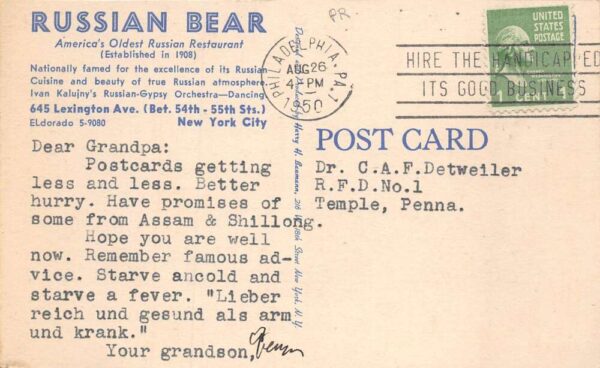 RUSSIAN BEAR
America's Oldest Russian Restaurant
(Established in 1908)
Nationally famed for the excellence of its Russian
Cuisine and beauty of true Russian atmosphere
Ivan Kalujny's Russian-Gypsy Orchestra—Dancing
645 Lexington Ave. (Bet. 54th - 55th Sts.)
ELdorado 5-9080 New York City
Dear Grandpa:
Postcards getting
less and less. Better
hurry. Have promises of
some from Assam & Shillong.
Hope you are well
now. Remember famous ad-
vice. Starve ancold and
starve a fever. "Lieber
reich und gesund als arm
und krank."
Your grandson,
by Harry H. Baumann, 216 W. 18th Street New York, N. Y.
PR
PHILADELPHIA, PA. 1
AUG 26
4 PM
1950
HIRE THE HANDICAPPED
ITS GOOD BUSINESS
UNITED
STATES
POSTAGE
1 CENT
POST CARD
Dr. C.A.F.Detweiler
R.F.D.No.1
Temple, Penna.